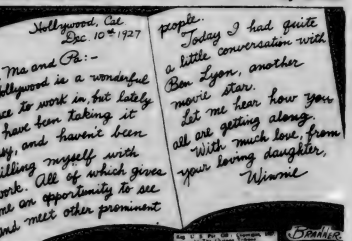 Hollywood, Cal
Dec. 10th 1927
Ma and Pa:-
Hollywood is a wonderful
to work in, but lately
have been taking it
and haven't been
killing myself with
work. All of which gives
me an opportunity to see
and meet other prominent
people.
Today I had quite
a little conversation with
Ben Lyon, another
movie star.
Let me hear how you
all are getting along.
With much love, from
your loving daughter,
Winnie
Reg. U. S. Pat. Off.; Copyright, 1927
BRANNER